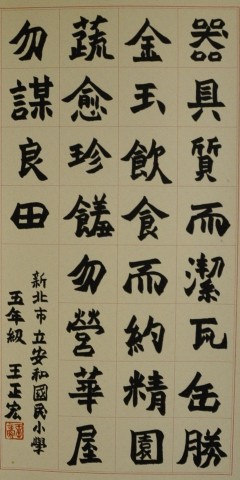 器具質而潔瓦缶勝
金玉飲食而約精園
蔬愈珍饈勿營華屋
勿謀良田
新北市立安和國民小學
五年級 王正宏